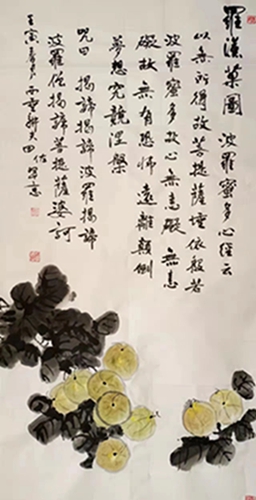 羅漢菓圖 波羅蜜多心經云
以無所得故菩提薩埵依般若
波羅蜜多故心無罣礙無罣
礙故無有恐怖遠離顛倒
夢想究竟涅槃
咒曰 揭諦揭諦波羅揭諦
波羅僧揭諦菩提薩婆訶
壬寅春月